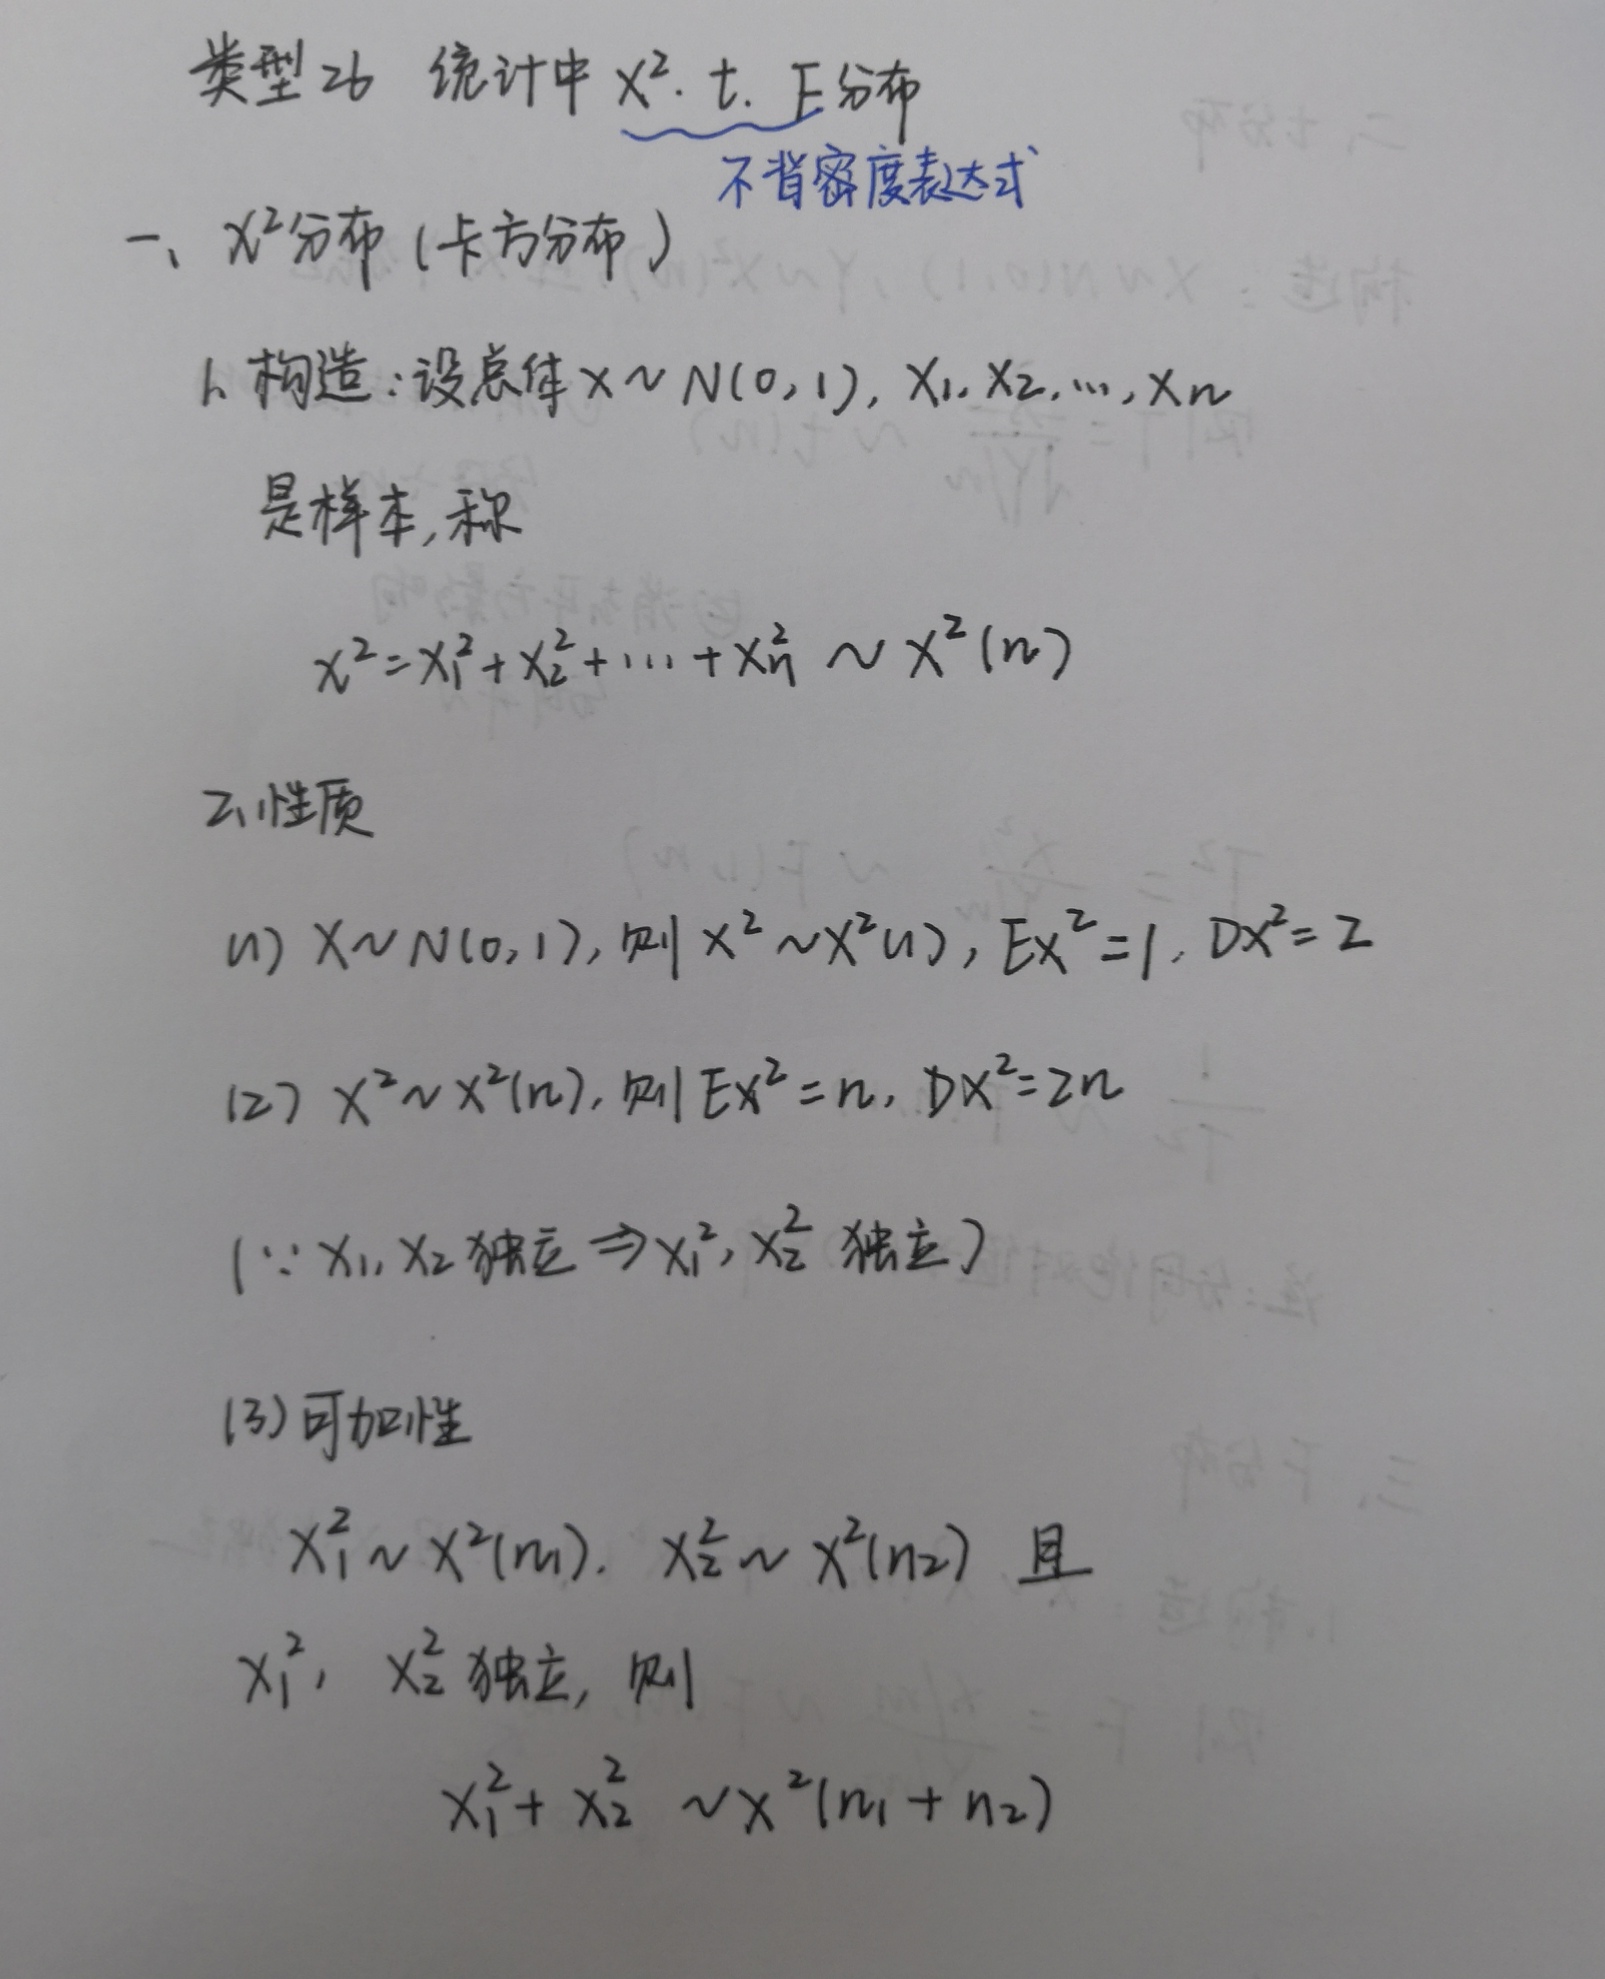 类型26 统计中χ².t.F分布
不背密度表达式
一、χ²分布(卡方分布)
1、构造:设总体X~N(0,1), X₁,X₂,…,Xn
是样本,称
χ²=X₁²+X₂²+…+Xn² ~ χ²(n)
2、性质
(1) X~N(0,1), 则 X²~χ²(1), EX²=1, DX²=2
(2) χ²~χ²(n), 则 Eχ²=n, Dχ²=2n
(∵ X₁,X₂独立⇒X₁²,X₂²独立)
(3)可加性
χ₁²~χ²(n₁). χ₂²~χ²(n₂) 且
χ₁², χ₂²独立, 则
χ₁²+χ₂² ~χ²(n₁+n₂)